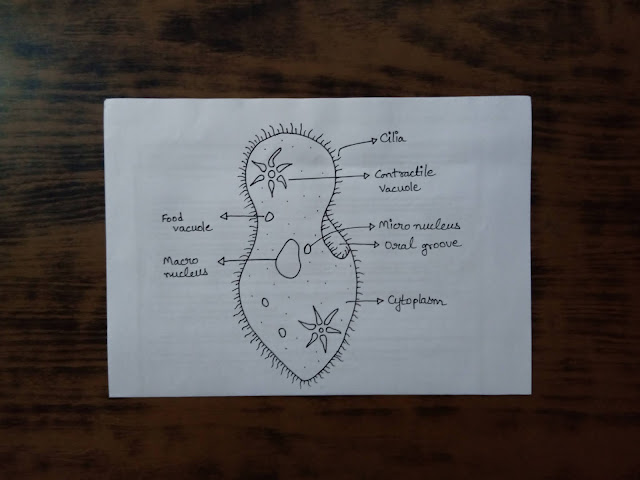 Cilia
Contractile
vacuole
Food
vacuole
Micro nucleus
Oral groove
Macro
nucleus
Cytoplasm